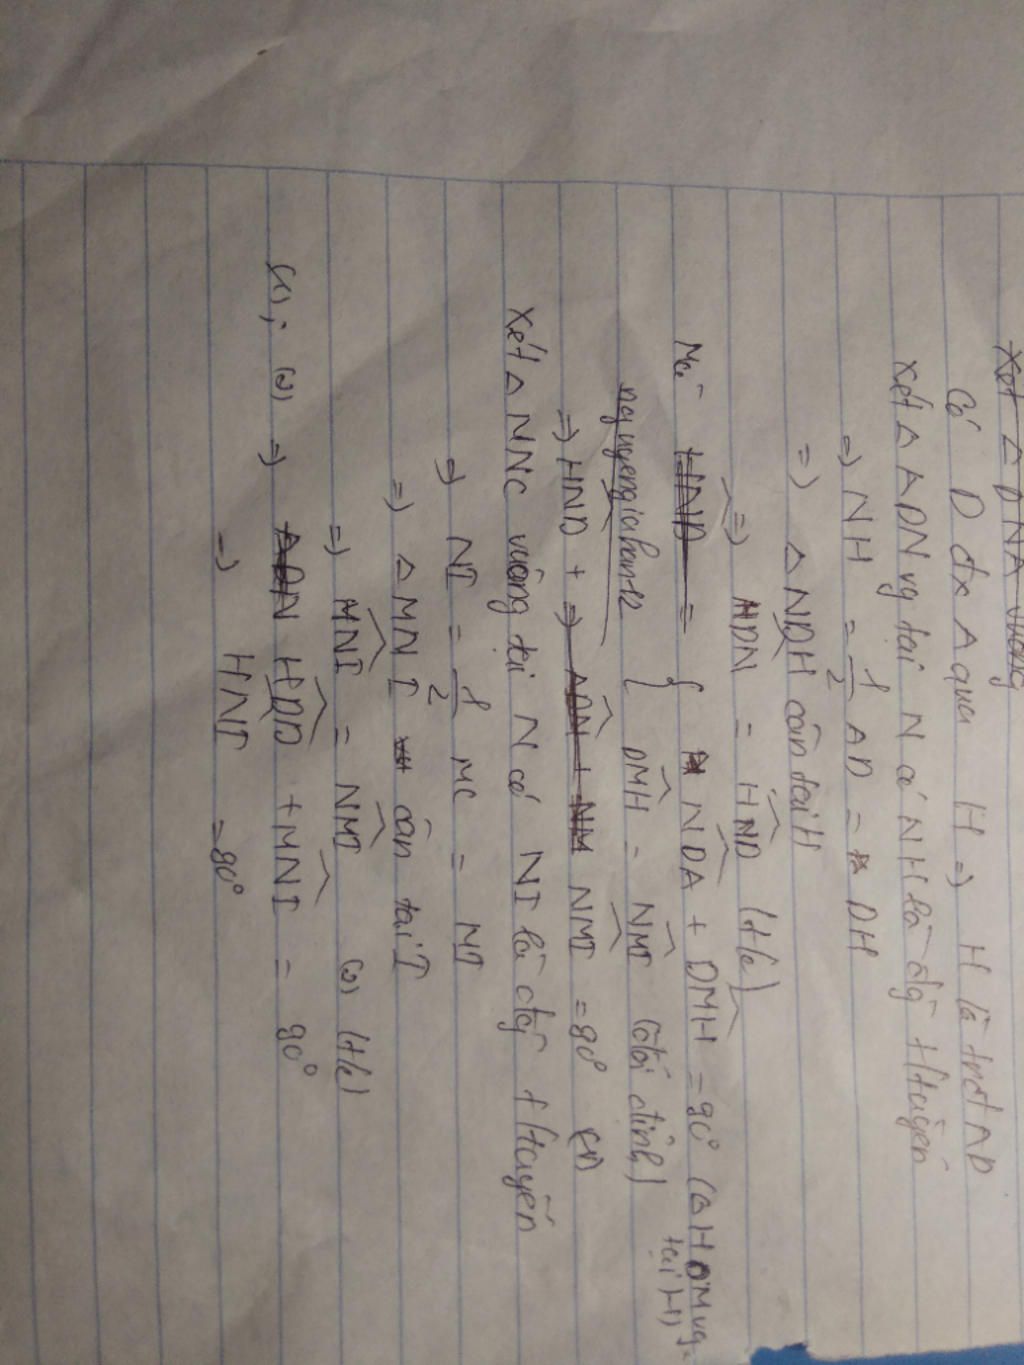 Xét △ DNA vuông
Có D đx A qua H => H là trđt AD
Xét △ ADN vg tại N có NH là đg t/tuyến
=> NH = 1/2 AD = DH
=> △ NDH cân tại H
=> HDN = HND (t/c)
Mà HND = { NDA + DMH = 90° (△ HDM vg tại H)
nguyengiahan12 } DMH = NMI (đối đỉnh)
=> HND + => ADN + NM NMI = 90° (1)
Xét △ NNC vuông tại N có NI là đg t/tuyến
=> NI = 1/2 MC = MI
=> △ MNI cân tại I
=> MNI = NMI (2) (t/c)
(1), (2) => ADN HDD + MNI = 90°
=> HNI = 90°